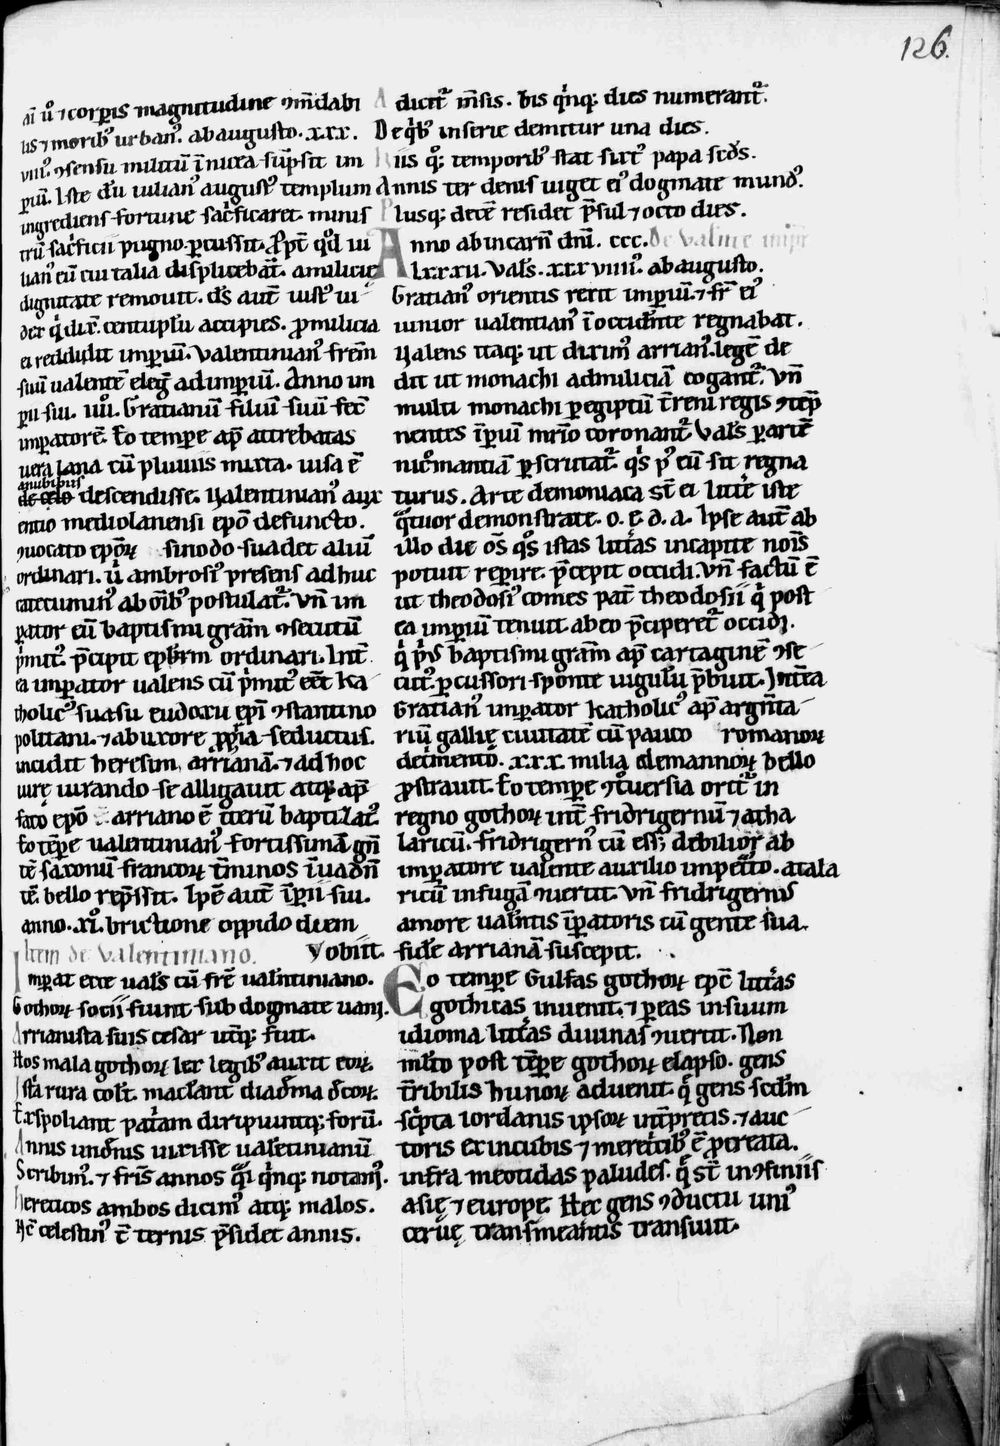 126.
aī u̇ ⁊ corꝑis magnitudine ꝯm̄dabi
lis ⁊ moribꝰ urbanꝰ. ab augusto. xxx.
viiiꝰ. ꝯsensu militū ī nicea sūpsit im
ꝑiū. Iste dū iulianꝰ augustꝰ templum
ingrediens fortune sac̓ficaret. minis
trū sac̓ficii pugno ꝑcussit. ꝓpt̄ qd̓ iu
lianꝰ eū cui talia displicebāt. a milicie
dignitate remouit. dꝰs aut̄ iustꝰ iu
dex q̇ dix̄. centuplū accipies. ꝓ milicia
ei reddidit imꝑiū. Valentinianꝰ frēm
suū ualentē eleg̓ ad imꝑiū. Anno im
ꝑii sui. iiiꝰ. Gratianū filiū suū fec̄
imꝑatorē. Eo temꝑe ap̄ attrebatas
uera lana cū pluuiis mixta. uisa ē
a nubibus
de celo descendisse. Valentinianꝰ aux
entio mediolanensi ep̄o defuncto.
ꝯuocato ep̄oꝝ sinodo suadet aliū
ordinari. u̇ ambrosiꝰ presens adhuc
catecuminꝰ ab oīb̓ postulat̓. Vn̄ im
ꝑator eū baptismi grām ꝯsecutū
p̓mitꝰ p̄cipit ep̄m ordinari. Int̄
ea imꝑator ualens cū p̓mitꝰ eēt ka
tholicꝰ suasu eudoxii ep̄i ꝯstantino
politani. ⁊ ab uxore ꝓpria seductus.
incidit heresim arrianā. ⁊ ad hoc
iure iurando se alligauit atqꝫ ap̄
fato ep̄o arriano ē iterū baptizatꝰ.
Eo tēꝑe ualentinianꝰ fortissimā gn̄
tē saxonū francoꝝ t̄minos inuadn̄
tē. bello repssit. Ipē aut̄ īꝑii sui.
anno. xiꝰ. brictione oppido diem
Item de Valentiniano. obiit.
Imꝑat ecce ual̄s cū frē ualn̄tiniano.
Gothoꝝ socii fiunt sub dogmate uani.
Arrianista suis cesar utqꝫ fuit.
Hos mala gothoꝝ lex legibꝰ auxit eoꝝ.
Ista rura colt̄. mactant diadēma dcoꝝ.
Exspoliant patriam diripiuntqꝫ forū.
Annis undenis uixisse ualentinianū
Scribimꝰ. ⁊ fr̄is annos q̄si q̇nqꝫ notamꝰ.
hereticos ambos dicimꝰ atqꝫ malos.
Hc̄ celestinꝰ c̄ ternis p̄sidet annis.
Adicit̄ mīsis. bis q̇nqꝫ dies numerant̓.
De qibꝰ in serie demitur una dies.
Hiis qꝫ temporibꝰ stat sixtꝰ papa scdꝰs.
Annis ter denis uiget eiꝰ dogmate mundꝰ.
Plusqꝫ decē residet p̄sul ⁊ octo dies.
Anno ab incarn̄ dnī. ccc. De Valente imꝑr̄
lxxxii. Val̄s. xxxviiii. ab augusto.
Gratianꝰ orientis rexit imꝑiū. ⁊ fr̄ eiꝰ
iunior ualentianꝰ ī occidente regnabat.
Valens itaqꝫ ut diximꝰ arrianꝰ. legē de
dit ut monachi ad miliciā cogant̓. Vn̄
multi monachi ꝑ egiptū t̄reni regis ꝯtēp
nentes īꝑiū mrīo coronant̓. Val̄s ꝑ artē
nic̓mantiā ꝑscrutat̓. qs̓ pꝰ eū sit regna
turus. Arte demoniaca st̄ ei litt̄e iste
q̄tuor demonstrate. o. e. d. a. Ipse aut̄ ab
illo die oēs qꝰs istas litt̄as in capite noīs
potuit reꝑire. p̄cepit occidi. Vn̄ factū ē
ut theodosiꝰ comes pat̄ theodosii q̇ post
ea imꝑiū tenuit ab eo p̄ciperet̓ occidi.
q̇ p̓us baptismi grām ap̄ cartaginē ꝯse
cutꝰ. ꝑcussori sponte iugulū p̄buit. Int̄ea
Gratianꝰ imꝑator katholicꝰ ap̄ argn̄ta
riū gallie ciuitatē cū pauco romanoꝝ
det̓mento. xxx. milia alemannoꝝ bello
ꝓstrauit. Eo temꝑe ꝯt̓uersia orit̓ in
regno gothoꝝ int̄ fridrigernū ⁊ atha
laricū. fridrigernꝰ cū essꝫ debilior ab
imꝑatore ualente auxilio impet̓to. atala
ricū in fugā ꝯuertit. Vn̄ fridrigernꝰ
amore ualn̄tis īꝑatoris cū gente sua
fidē arrianā suscepit.
Eo temꝑe Gulfas gothoꝝ ep̄c litt̄as
gothicas inuenit. ⁊ ꝑ eas in suum
idioma litt̄as diuinas ꝯuertit. Non
mlt̄o post tēꝑe gothoꝝ elapso. gens
t̄ribilis hunoꝝ aduenit. q̄ gens scd̄m
sc̓pta iordanis ipsoꝝ int̄pretis. ⁊ auc
toris ex incubis ⁊ meret̓cibꝰ ē ꝓcreata.
infra meotidas paludes. q̄ st̄ in ꝯfiniis
asie ⁊ europe. Hec gens ꝯductu uniꝰ
cerue transmeantis transiuit.